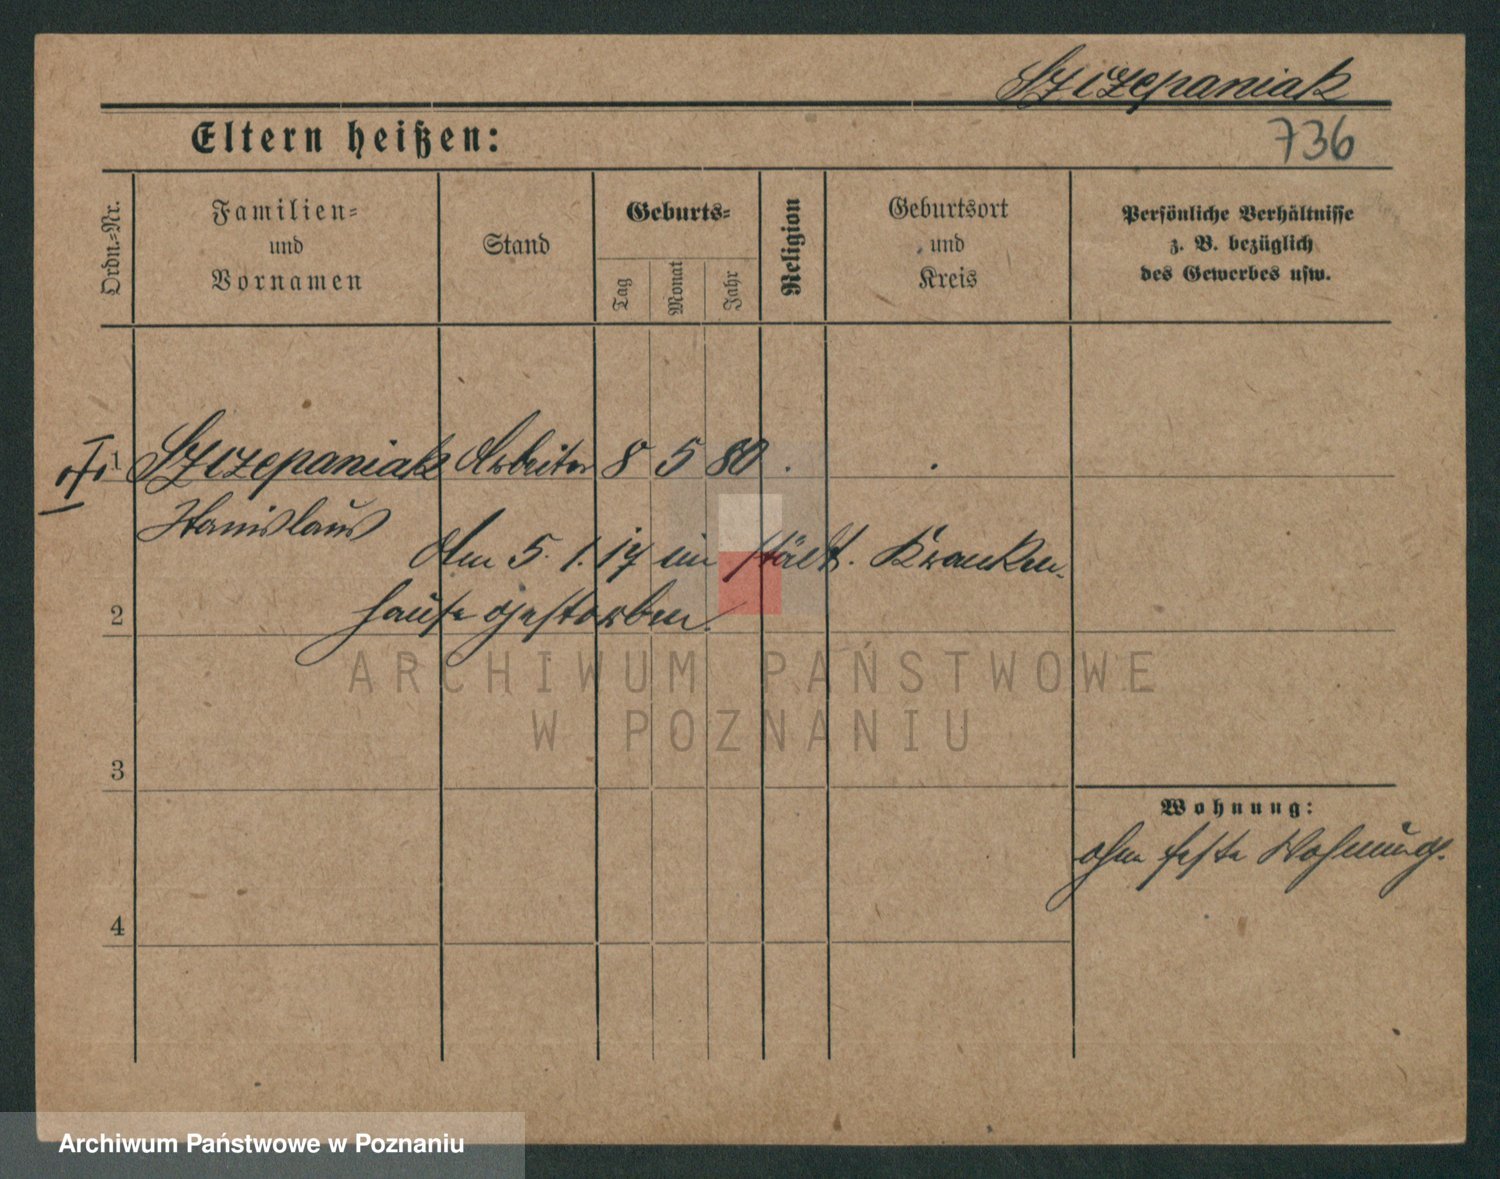 Szczepaniak
Eltern heißen:
736
Ordn.-Nr.
Familien-
und
Vornamen
Stand
Geburts-
Tag
Monat
Jahr
Religion
Geburtsort
und
Kreis
Persönliche Verhältnisse
z. B. bezüglich
des Gewerbes usw.
1 Szczepaniak Arbeiter 8 5 80 . .
Stanislaus
Am 5. 1. 17 im städt. Kranken-
hause gestorben.
2
3
Wohnung:
ohne feste Wohnung.
4
ARCHIWUM PAŃSTWOWE
W POZNANIU
Archiwum Państwowe w Poznaniu